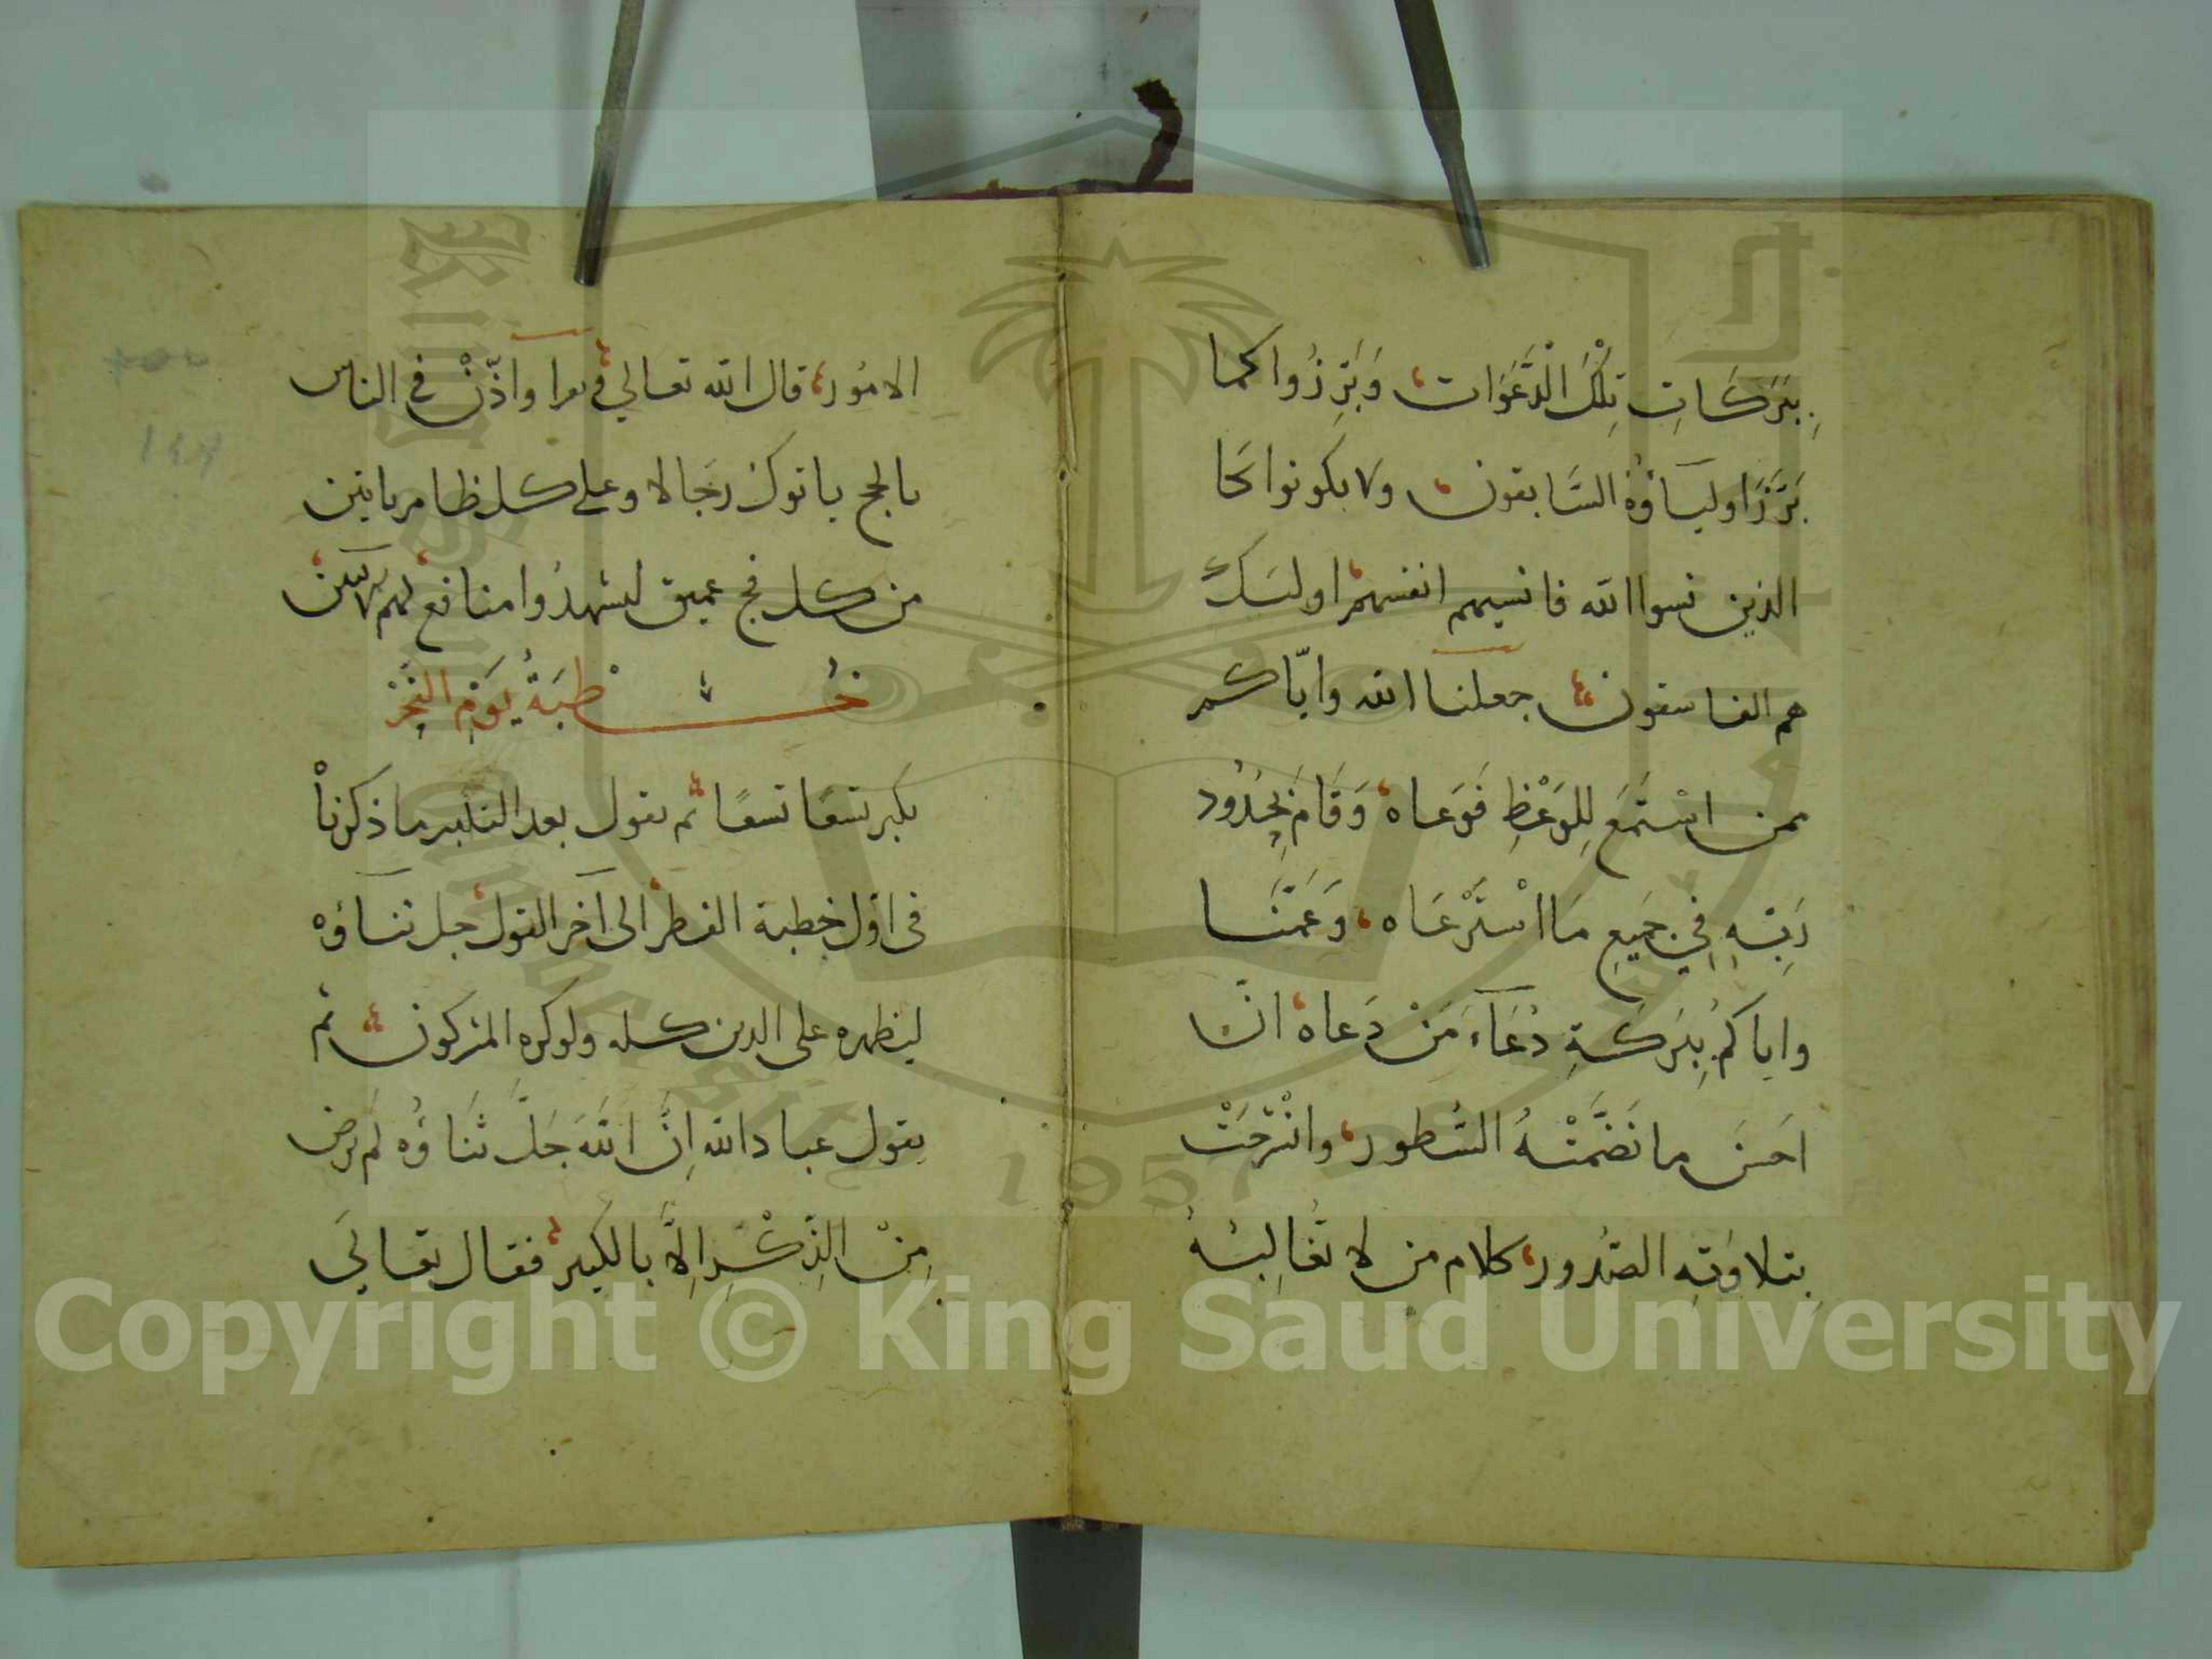 بِبَرَكَاتِ تِلْكَ الْدَّعَوَات وَبَرِزُوا كما
بَرَّزَ اولياؤهُ السَّابقون ولا يكونوا كا
الذين نسوا الله فانسيهم انفسهم اوليك
هم الفاسقون جعلنا الله وايّاكم
ممن اسْتَمَعَ لِلوَعْظِ فَوَعاه وَقَامَ بِحُدُود
رَبِّهِ فِي جَمِيعِ مَا اسْتَرْعَاه وَعَمَّنَا
واياكُم بِبَرَكَةِ دُعَآءِ مَنْ دَعاه انّ
احَسَن ما تَضَمَّنَتْهُ السُّطور وانْشَرَحَتْ
بِتلاوَتِهِ الصُّدُور كلام من لا تُغَالِبُهُ
الامُور قال الله تعالي واذّنْ في الناس
بالحج ياتوك رَجَالا وعلى كل ظامر ياتين
من كل فج عميق ليشهدُوا منافع لهم
خُطبَةُ يَوْمِ النَّحْرْ
يكبر تسعًا تسعًا ثم يقول بعد التكبير ما ذكرناْ
في اوّل خطبة الفطر الى آخر القول جل ثناؤه
ليظهره على الدين كله ولو كره المشركون ثم
يقول عباد الله اِنَّ اللهَ جَلَّ ثَنَاؤُه لم يرض
مِنْ الذِّكْرِ اِلاَّ بالكبير فقال تعالَي
Copyright © King Saud University
1957